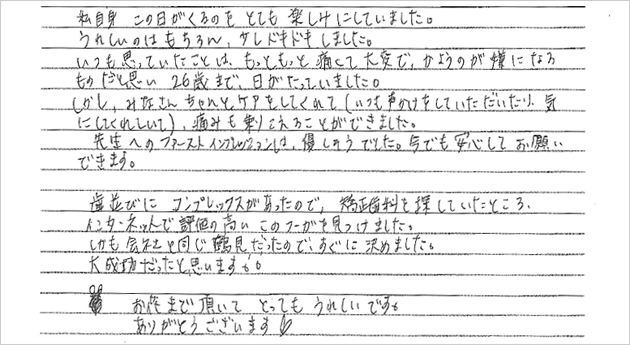 私自身 この日がくるのを とても 楽しみにしていました。
うれしいのはもちろん、少しドキドキしました。
いつも思っていたことは、もっともっと 痛くて 大変で、かようのが嫌になる
ものだと思い 26歳まで、日がたっていました。
しかし、みなさん ちゃんと ケアをしてくれて(いつも声かけをしていただいたり、気
にしてくれていて)、痛みも乗りこえることができました。
先生へのファーストインプレッションは、優しそうでした。今でも 安心して お願い
できます。
歯並びに コンプレックスがあったので、矯正歯科を探していたところ、
インターネットで 評価の高い このフーガを見つけました。
しかも 会社と同じ 鶴見だったので、すぐに 決めました。
大成功だったと思います。
お花まで 頂いて とっても うれしいです。
ありがとうございます♡